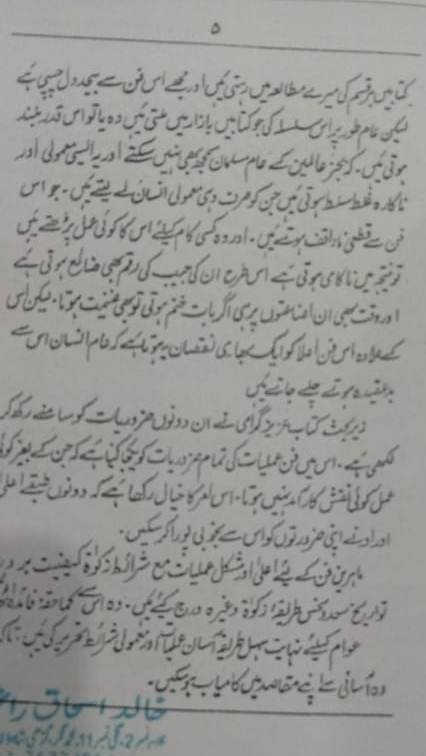 ۵
کتابیں ہر قسم کی میرے مطالعہ میں رہتی ہیں اور مجھے اس فن سے بیحد دل چسپی ہے
لیکن عام طور پر اس سلسلہ کی جو کتابیں بازار میں ملتی ہیں وہ یا تو اس قدر بلند
ہوتی ہیں۔ کہ بجز عاملین کے عام مسلمان سمجھ بھی نہیں سکتے اور یہ ایسی معمولی اور
ناکارہ غلط سلط ہوتی ہیں جن کو صرف وہی معمولی انسان لے لیتے ہیں۔ جو اس
فن سے قطعی ناواقف ہوتے ہیں۔ اور وہ کسی کام کیلئے اس کا کوئی عمل پڑھتے ہیں
تو نتیجہ میں ناکامی ہوتی ہے اس طرح ان کی جیب کی رقم بھی ضائع ہوتی ہے
اور وقت بھی ان اضاعتوں پر ہی اگر بات ختم ہوتی تو بھی غنیمت ہوتا۔ لیکن اس
کے علاوہ اس فن اعلا کو ایک بھاری نقصان یہ ہوتا ہے کہ عام انسان اس سے
بد عقیدہ ہوتے چلے جاتے ہیں
زیر بحث کتاب عزیز گرامی نے ان دونوں ضروریات کو سامنے رکھ کر
لکھی ہے۔ اس میں فن عملیات کی تمام ضروریات کو یکجا کیا گیا ہے کہ جن کے بغیر کوئی
عمل کوئی نقش کار آمد نہیں ہوتا۔ اس امر کا خیال رکھا ہے کہ دونوں طبقے اعلیٰ
اور ادنے اپنی ضرورتوں کو اس سے بخوبی پورا کر سکیں۔
ماہرین فن کے لئے اعلیٰ اور مشکل عملیات مع شرائط زکوٰۃ کیفیت بروج
تواریخ سعد و نحس طریقۂ زکوٰۃ وغیرہ درج کیئے ہیں۔ وہ اس سے کما حقہ فائدہ
عوام کیلئے نہایت سہل طریقہ آسان عملیات اور معمولی شرائط تحریر کی ہیں۔ تاکہ
وہ آسانی سے اپنے مقاصد میں کامیاب ہو سکیں۔
خالد اسحاق
نمبر 2، گلی نمبر 11، محمد نگر